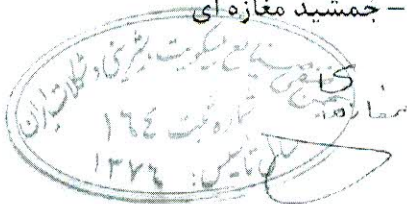 - جمشید مغازه ای
انجمن صنفی صنایع بیسکویت، شیرینی و شکلات ایران
شماره ثبت ۱۶۴
سال تأسیس: ۱۳۷۶